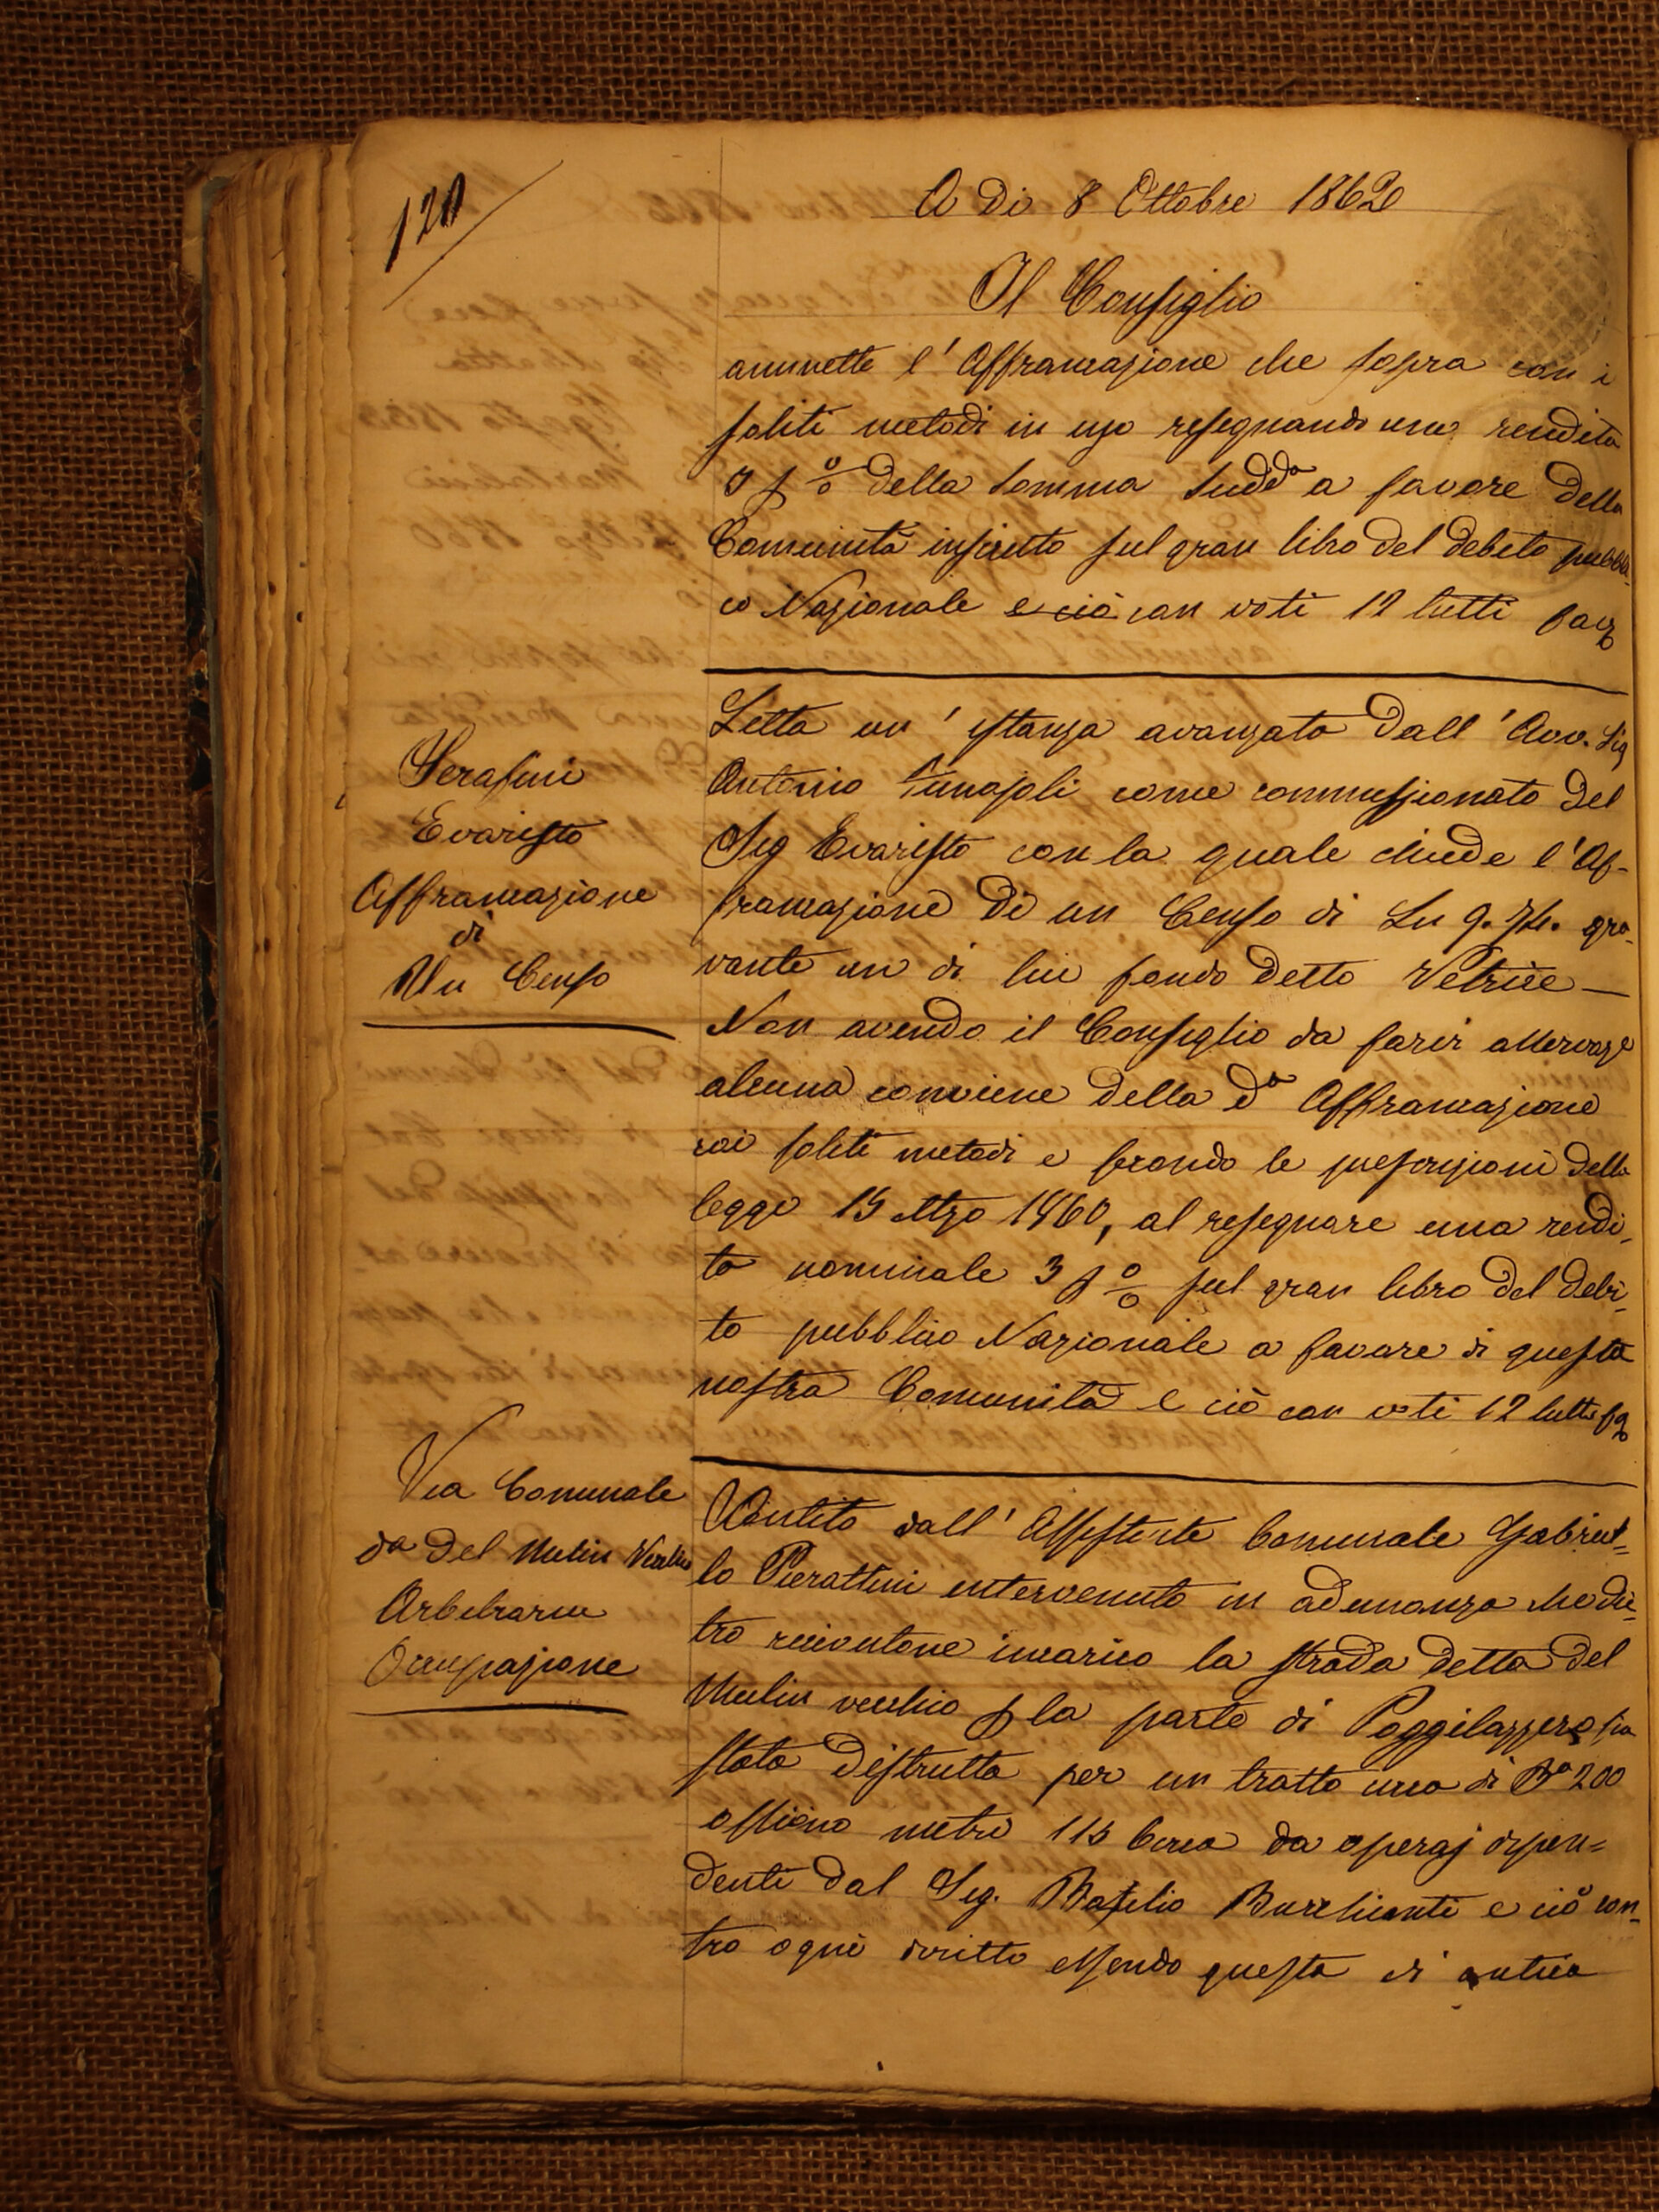 120
A Di 8 Ottobre 1862
Il Consiglio
ammette l'Affrancazione che sopra con i
soliti metodi in uso rassegnando una rendita
3 p % della somma sudda a favore della
Comunità inscritto sul gran libro del debito pubbli-
co Nazionale e ciò con voti 12 tutti
Serafini
Evaristo
Affrancazione
di
Un Censo
Letta un'istanza avanzata dall'Avv. Sig
Antonio Funajoli come commissionato del
Sig Evaristo con la quale chiede l'Af-
francazione di un Censo di 9. 74. gra-
vante un di lui fondo detto Vetrice —
Non avendo il Consiglio da farvi
alcuna conviene della da Affrancazione
coi soliti metodi e secondo le prescrizioni della
legge 15 Mzo 1860, al resegnare una rendi-
ta nominale 3 p % sul gran libro del debi-
to pubblico Nazionale a favore di questa
nostra Comunità e ciò con voti 12 tutti
Via Comunale
da del Mulin Vecchio
Arbitraria
Occupazione
Sentito dall'Assistente Comunale Gabriel-
lo Pierattini intervenuto in adunanza che die-
tro ricevutone incarico la strada detta del
Mulin vecchio p la parte di sia
stata distrutta per un tratto circa di Ba 200
ossieno metri 115 circa da operaj dipen-
denti dal Sig. Basilio Burchianti e ciò con-
tro ogni diritto essendo questa di antica